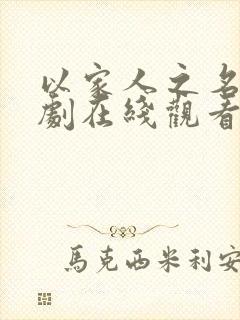 以家人之名
劇在綫觀看
馬克西米利安